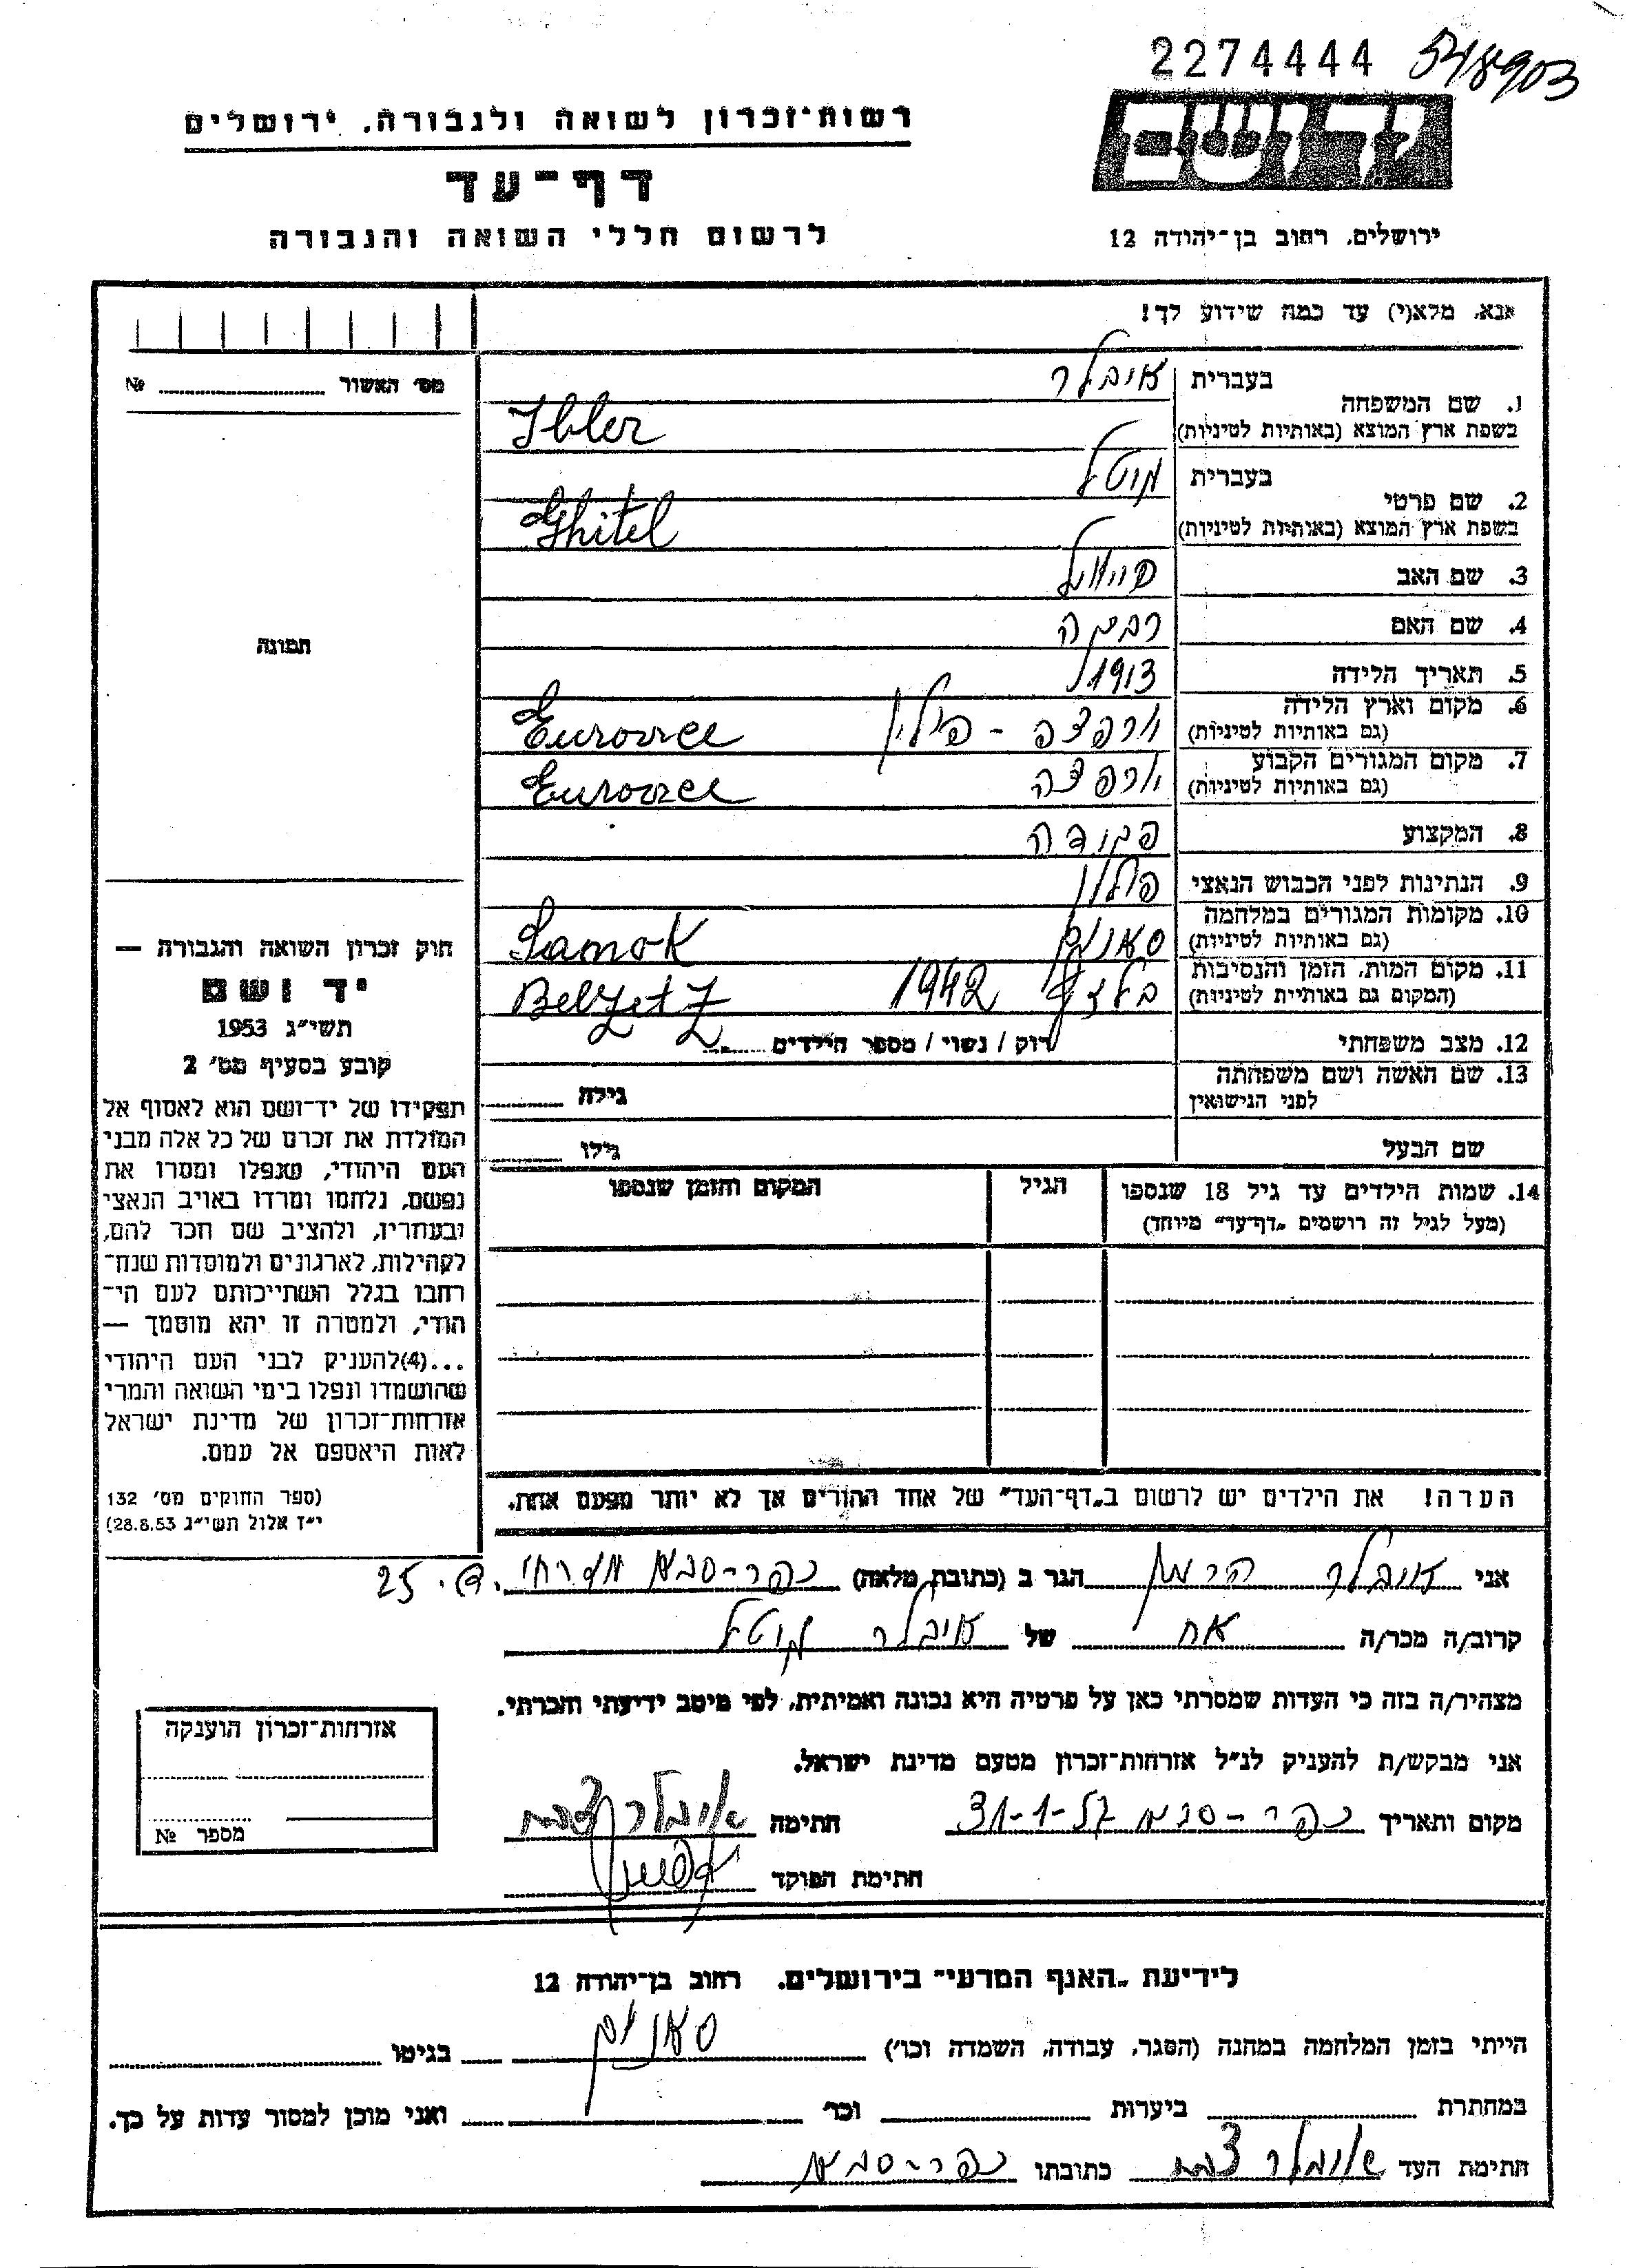 2274444 548903
רשות־זכרון לשואה ולגבורה, ירושלים
יד ושם
דף־עד
לרשום חללי השואה והגבורה
ירושלים, רחוב בן־יהודה 12
אנא, מלא(י) עד כמה שידוע לך!
מס׳ האשור № 
תמונה
1. שם המשפחה בעברית איבלר
בשפת ארץ המוצא (באותיות לטיניות) Ibler
2. שם פרטי בעברית
בשפת ארץ המוצא (באותיות לטיניות) Ghitel
3. שם האב
4. שם האם רבקה
5. תאריך הלידה 1913
6. מקום וארץ הלידה
(גם באותיות לטיניות)
7. מקום המגורים הקבוע
(גם באותיות לטיניות)
8. המקצוע פקודה
9. הנתינות לפני הכבוש הנאצי פולין
10. מקומות המגורים במלחמה סאנוק
(גם באותיות לטיניות) Sanok
11. מקום המות, הזמן והנסיבות 1942
(המקום גם באותיות לטיניות) Belzetz
12. מצב משפחתי רוק / נשוי / מספר הילדים
13. שם האשה ושם משפחתה גילה
לפני הנישואין
שם הבעל גילו
14. שמות הילדים עד גיל 18 שנספו הגיל המקום והזמן שנספו
(מעל לגיל זה רושמים „דף־עד״ מיוחד)
הערה! את הילדים יש לרשום ב„דף־העד״ של אחד ההורים אך לא יותר מפעם אחת.
חוק זכרון השואה והגבורה —
יד ושם
תשי״ג 1953
קובע בסעיף מס׳ 2
תפקידו של יד־ושם הוא לאסוף אל
המולדת את זכרם של כל אלה מבני
העם היהודי, שנפלו ומסרו את
נפשם, נלחמו ומרדו באויב הנאצי
ובעוזריו, ולהציב שם וזכר להם,
לקהילות, לארגונים ולמוסדות שנח־
רבו בגלל השתייכותם לעם הי־
הודי, ולמטרה זו יהא מוסמך —
...(4)להעניק לבני העם היהודי
שהושמדו ונפלו בימי השואה והמרי
אזרחות־זכרון של מדינת ישראל
לאות היאספם אל עמם.
(ספר החוקים מס׳ 132
י״ז אלול תשי״ג 28.8.53)
אני איבלר הרמן הגר ב (כתובת מלאה) כפר-סבא 25
קרוב/ה מכר/ה אח של איבלר
מצהיר/ה בזה כי העדות שמסרתי כאן על פרטיה היא נכונה ואמיתית, לפי מיטב ידיעתי והכרתי.
אני מבקש/ת להעניק לנ״ל אזרחות־זכרון מטעם מדינת ישראל.
מקום ותאריך כפר-סבא 31-1-57 חתימה
חתימת הפוקד
אזרחות־זכרון הוענקה
מספר №
לידיעת „האגף המדעי״ בירושלים. רחוב בן־יהודה 12
הייתי בזמן המלחמה במחנה (הסגר, עבודה, השמדה וכו׳) סאנוק בגיטו
במחתרת ביערות וכו׳ ואני מוכן למסור עדות על כך.
חתימת העד כתובתו כפר-סבא